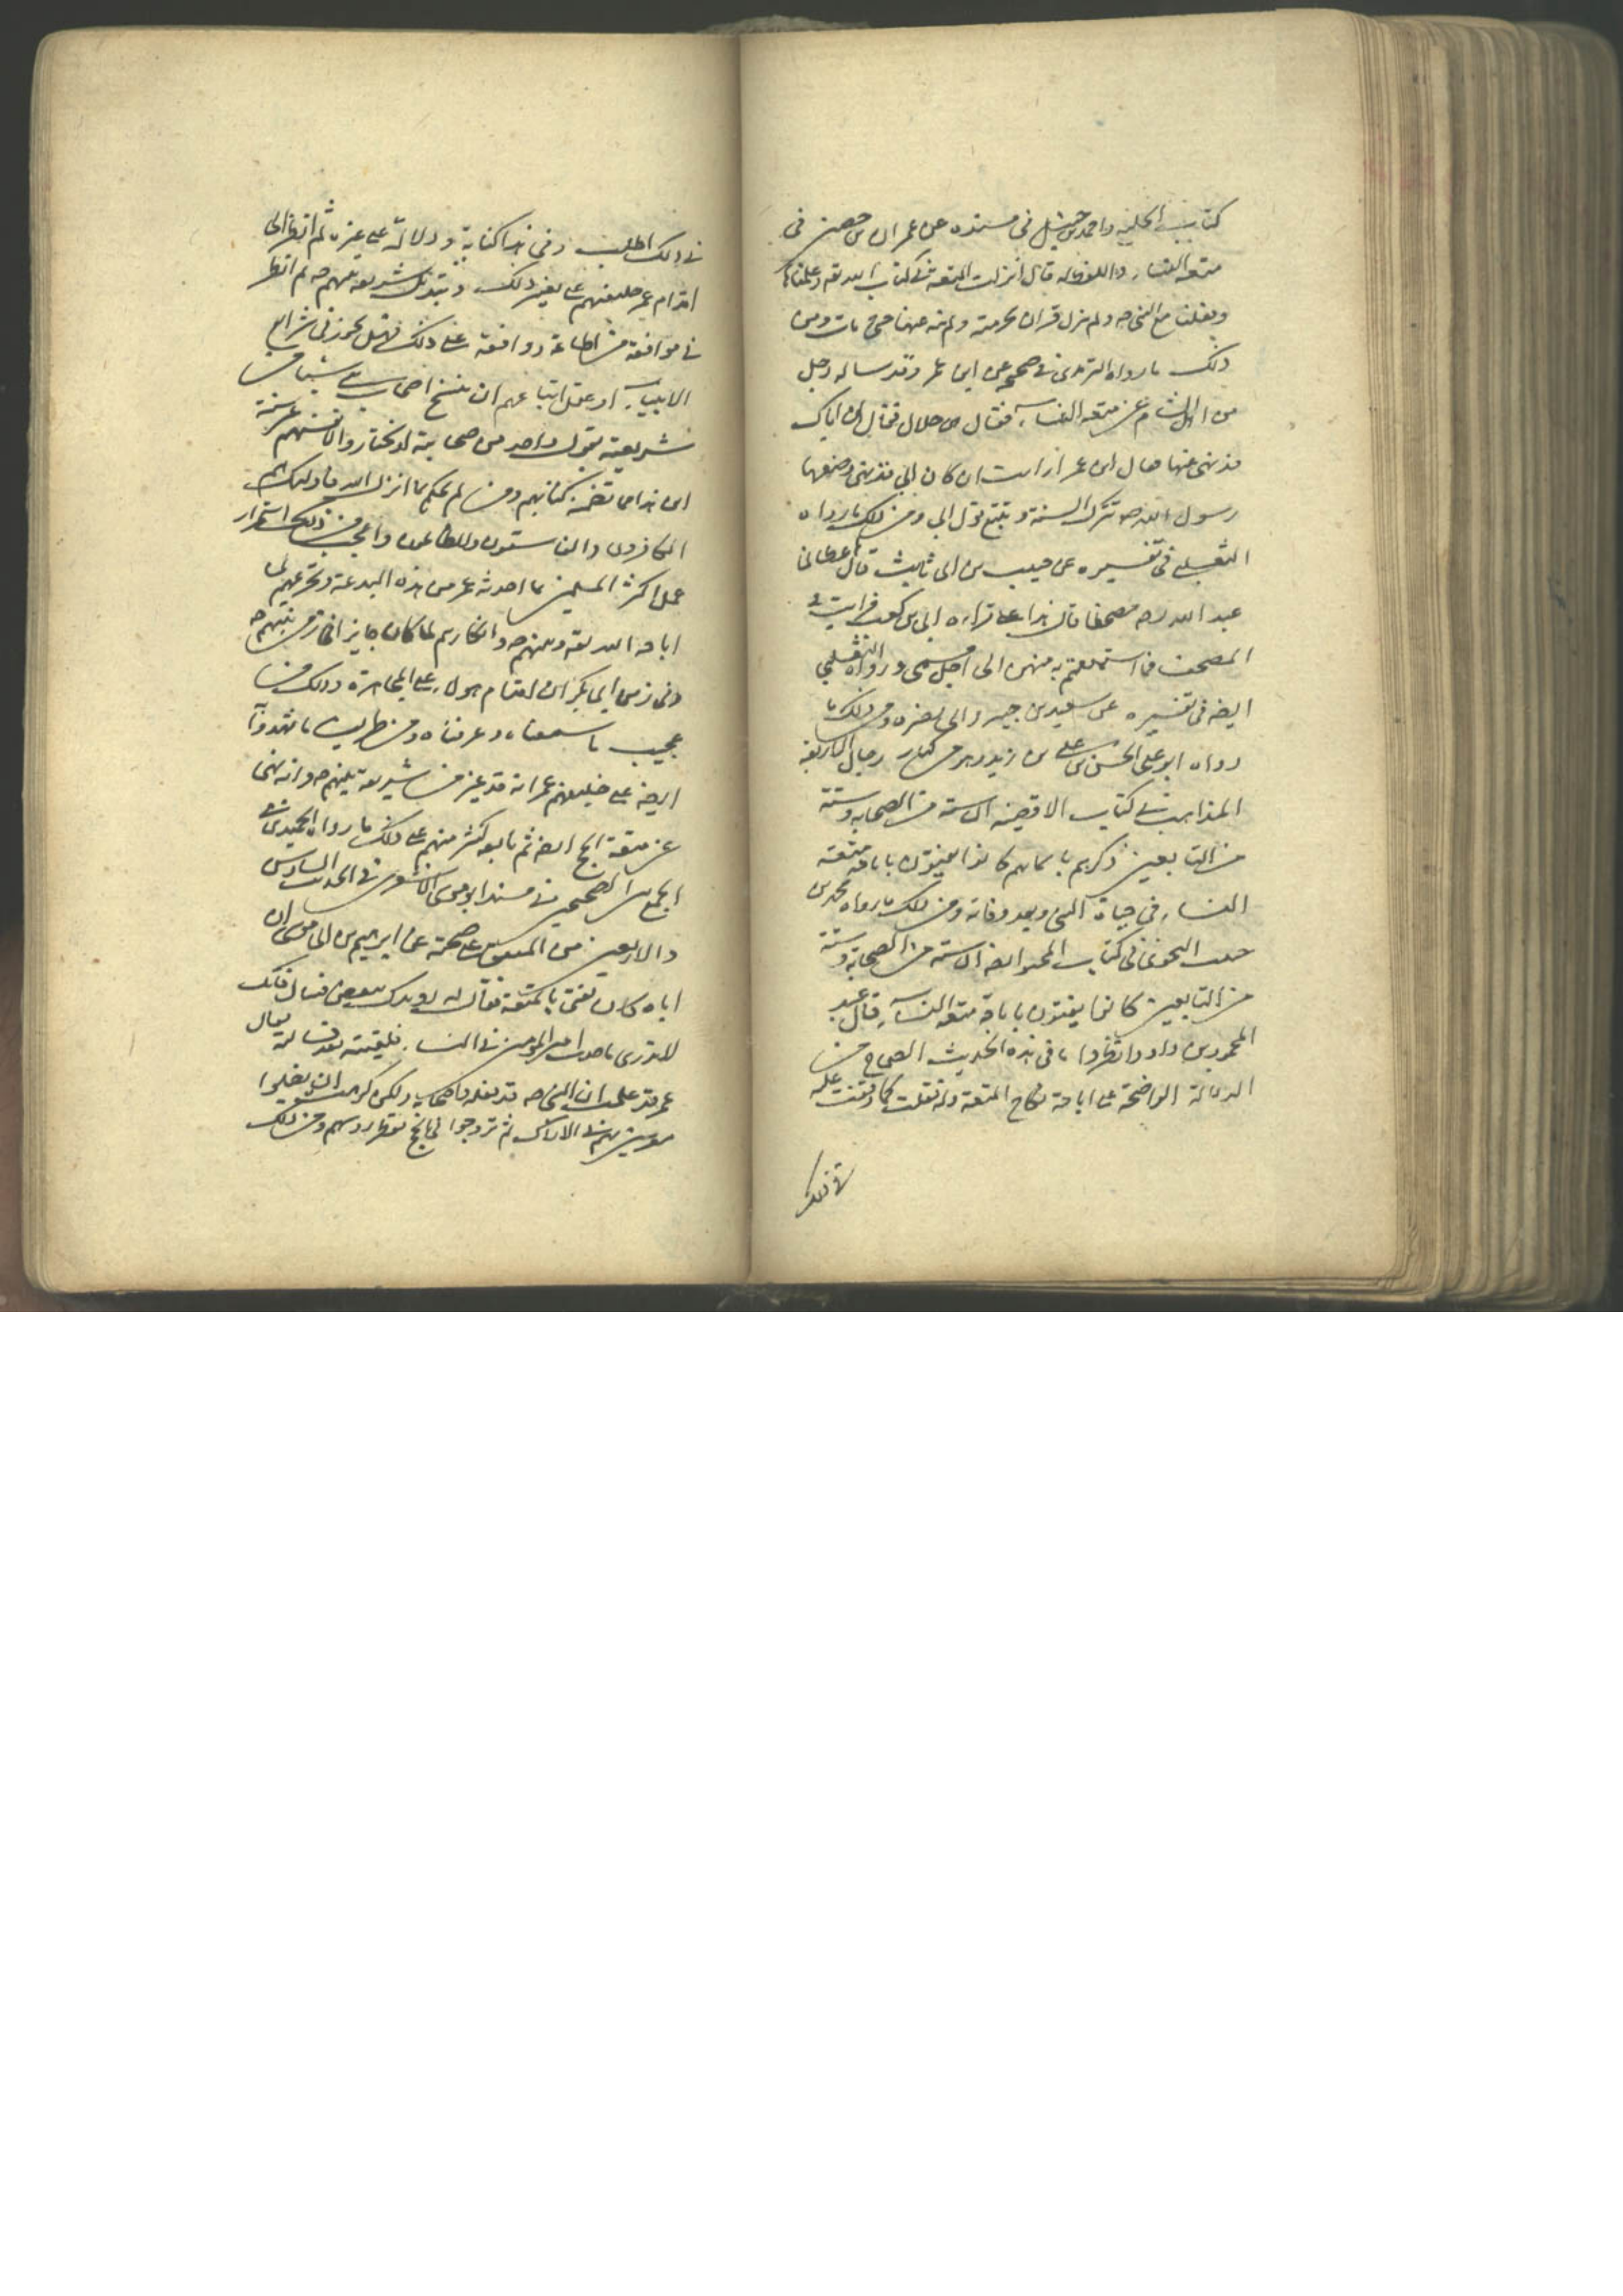 كتاب الحلية واحمد بن حنبل في مسنده عن عمران بن حصين في
متعة النساء واللفظ له قال انزلت المتعة في كتاب الله تعه وعلمناها
وفعلنا مع النبي صه ولم ينزل قران بحرمته ولم ينه عنها حتى مات ومن
ذلك ما رواه الترمذي في صحيحه عن ابن عمر وقد ساله رجل
من اهل الشام عن متعة النساء فقال هي حلال فقال ان اباك
قد نهى عنها فقال ابن عمر ارايت ان كان ابي قد نهى وصنعها
رسول الله صه نترك السنة ونتبع قول ابي ومن ذلك ما رواه
الثعلبي في تفسيره عن حبيب بن ابي ثابت قال اعطاني
عبد الله مصحفا قال هذا على قراءة ابي بن كعب فرايت في
المصحف فما استمتعتم به منهن الى اجل مسمى ورواه الثعلبي
ايضه في تفسيره عن سعيد بن جبير وابي نضره ومن ذلك ما
رواه ابو علي الحسن بن علي بن زيد وهو من كبار رجال الاربعة
المذاهب في كتاب الاقضية ان ستة من الصحابة وستة
من التابعين ذكرهم باسمائهم كانوا يفتون باباحة متعة
النساء في حياة النبي وبعد وفاته ومن ذلك ما رواه محمد بن
حبيب النحوي في كتاب المحبر ايضه ان ستة من الصحابة وستة
من التابعين كانوا يفتون باباحة متعة النساء قال عبد
المحمود بن داود وانظروا ما في هذه الحديث الصحاح من
الدلالة الواضحة على اباحة نكاح المتعة وقد نقلت كما وقفت عليه
في ذلك
في ذلك اطلب وفي هذا كفاية ودلالة على غيره ثم انظر الى
اقدام عمر خليفتهم على تغيير ذلك وتبديل شريعة نبيهم صه ثم انظر
في موافقة من اطاعه ووافقه على ذلك فهل يجوز في شرايع
الانبياء او عقل اتباعهم ان ينسخ اصحاب نبي شيئا من
شريعته بقول واحد من صحابته لو يختار والانفسهم غير سنته
اين هذا مما تضمنه كتابهم ومن لم يحكم بما انزل الله فاولئك هم
الكافرون والفاسقون والظالمون واعجب من ذلك استمرار
عمل اكثر المسلمين بما احدثه عمر من هذه البدعة وتحريمهم لما
اباحه الله تعه ونبيهم صه وانكارهم لما كان جايزا في زمن نبيهم صه
وفي زمن ابي بكر ان اقدام هولاء على المجاهرة بذلك من
عجيب ما سمعناه وعرفناه ومن طريف ما شهدوا
ايضه على خليفتهم عمر انه قد غير من شريعة نبيهم صه وانه نهى
عن متعة الحج ايضه ثم تابعه كثير منهم على ذلك ما رواه الحميدي في
الجمع بين الصحيحين في مسند ابو موسى الاشعري في الحديث السادس
والاربعين من المتفق على صحته عن ابراهيم بن ابي موسى ان
اباه كان يفتي بالمتعة فقال له رويدك ببعض فتياك فانك
لا تدري ما احدث امير المومنين في النساء فلقيته بعد فسالته فقال
عمر قد علمت ان النبي صه قد فعله واصحابه ولكن كرهت ان يظلوا
معرسين بهن في الاراك ثم تروحوا في الحج تقطر روسهم ومن ذلك